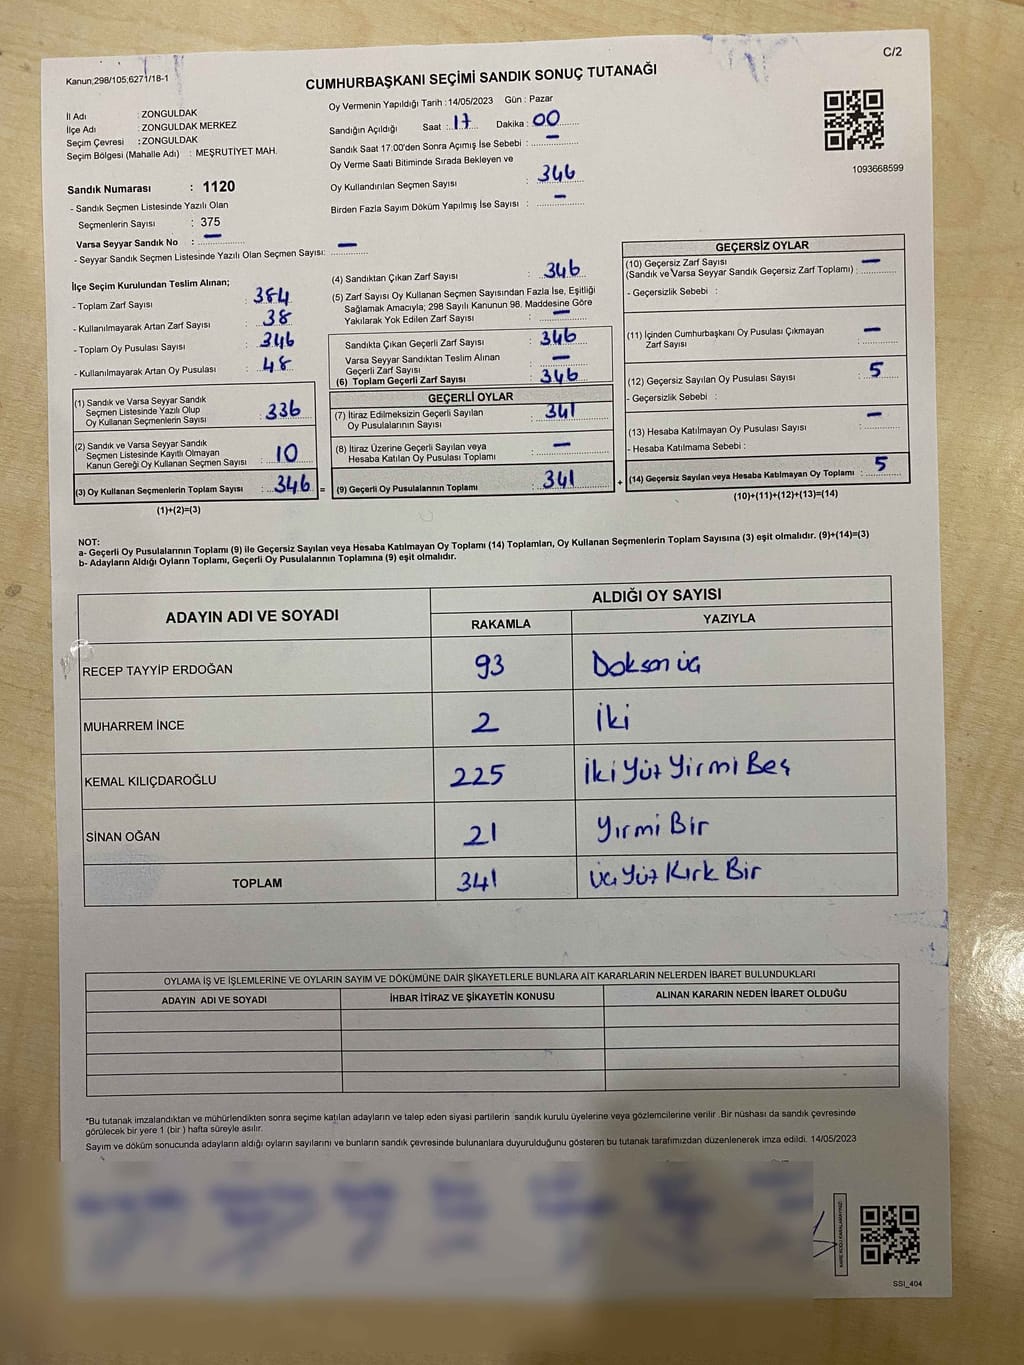 C/2
Kanun,298/105;6271/18-1
CUMHURBAŞKANI SEÇİMİ SANDIK SONUÇ TUTANAĞI
İl Adı : ZONGULDAK
İlçe Adı : ZONGULDAK MERKEZ
Seçim Çevresi : ZONGULDAK
Seçim Bölgesi (Mahalle Adı) : MEŞRUTİYET MAH.
Sandık Numarası : 1120
- Sandık Seçmen Listesinde Yazılı Olan
Seçmenlerin Sayısı : 375
Varsa Seyyar Sandık No : —
- Seyyar Sandık Seçmen Listesinde Yazılı Olan Seçmen Sayısı: —
Oy Vermenin Yapıldığı Tarih : 14/05/2023 Gün : Pazar
Sandığın Açıldığı Saat : 17 Dakika : 00
Sandık Saat 17:00'den Sonra Açımış İse Sebebi : —
Oy Verme Saati Bitiminde Sırada Bekleyen ve
Oy Kullandırılan Seçmen Sayısı : 346
Birden Fazla Sayım Döküm Yapılmış İse Sayısı : —
1093668599
İlçe Seçim Kurulundan Teslim Alınan;
- Toplam Zarf Sayısı : 384
- Kullanılmayarak Artan Zarf Sayısı : 38
- Toplam Oy Pusulası Sayısı : 346
- Kullanılmayarak Artan Oy Pusulası : 48
(1) Sandık ve Varsa Seyyar Sandık
Seçmen Listesinde Yazılı Olup
Oy Kullanan Seçmenlerin Sayısı : 336
(2) Sandık ve Varsa Seyyar Sandık
Seçmen Listesinde Kayıtlı Olmayan
Kanun Gereği Oy Kullanan Seçmen Sayısı : 10
(3) Oy Kullanan Seçmenlerin Toplam Sayısı : 346 =
(1)+(2)=(3)
(4) Sandıktan Çıkan Zarf Sayısı : 346
(5) Zarf Sayısı Oy Kullanan Seçmen Sayısından Fazla İse, Eşitliği
Sağlamak Amacıyla; 298 Sayılı Kanunun 98. Maddesine Göre
Yakılarak Yok Edilen Zarf Sayısı : —
Sandıkta Çıkan Geçerli Zarf Sayısı : 346
Varsa Seyyar Sandıktan Teslim Alınan
Geçerli Zarf Sayısı : —
(6) Toplam Geçerli Zarf Sayısı : 346
GEÇERLİ OYLAR
(7) İtiraz Edilmeksizin Geçerli Sayılan
Oy Pusulalarının Sayısı : 341
(8) İtiraz Üzerine Geçerli Sayılan veya
Hesaba Katılan Oy Pusulası Toplamı : —
(9) Geçerli Oy Pusulalarının Toplamı : 341 +
GEÇERSİZ OYLAR
(10) Geçersiz Zarf Sayısı
(Sandık ve Varsa Seyyar Sandık Geçersiz Zarf Toplamı) : —
- Geçersizlik Sebebi :
(11) İçinden Cumhurbaşkanı Oy Pusulası Çıkmayan
Zarf Sayısı : —
(12) Geçersiz Sayılan Oy Pusulası Sayısı : 5
- Geçersizlik Sebebi :
(13) Hesaba Katılmayan Oy Pusulası Sayısı : —
- Hesaba Katılmama Sebebi :
(14) Geçersiz Sayılan veya Hesaba Katılmayan Oy Toplamı : 5
(10)+(11)+(12)+(13)=(14)
NOT:
a- Geçerli Oy Pusulalarının Toplamı (9) ile Geçersiz Sayılan veya Hesaba Katılmayan Oy Toplamı (14) Toplamları, Oy Kullanan Seçmenlerin Toplam Sayısına (3) eşit olmalıdır. (9)+(14)=(3)
b- Adayların Aldığı Oyların Toplamı, Geçerli Oy Pusulalarının Toplamına (9) eşit olmalıdır.
ADAYIN ADI VE SOYADI ALDIĞI OY SAYISI
RAKAMLA YAZIYLA
RECEP TAYYİP ERDOĞAN 93 Doksan üç
MUHARREM İNCE 2 İki
KEMAL KILIÇDAROĞLU 225 İki Yüz Yirmi Beş
SİNAN OĞAN 21 Yirmi Bir
TOPLAM 341 Üç Yüz Kırk Bir
OYLAMA İŞ VE İŞLEMLERİNE VE OYLARIN SAYIM VE DÖKÜMÜNE DAİR ŞİKAYETLERLE BUNLARA AİT KARARLARIN NELERDEN İBARET BULUNDUKLARI
ADAYIN ADI VE SOYADI İHBAR İTİRAZ VE ŞİKAYETİN KONUSU ALINAN KARARIN NEDEN İBARET OLDUĞU
*Bu tutanak imzalandıktan ve mühürlendikten sonra seçime katılan adayların ve talep eden siyasi partilerin sandık kurulu üyelerine veya gözlemcilerine verilir. Bir nüshası da sandık çevresinde
görülecek bir yere 1 (bir) hafta süreyle asılır.
Sayım ve döküm sonucunda adayların aldığı oyların sayılarını ve bunların sandık çevresinde bulunanlara duyurulduğunu gösteren bu tutanak tarafımızdan düzenlenerek imza edildi. 14/05/2023
KARE KODU KARALAMAYINIZ!
SSI_404